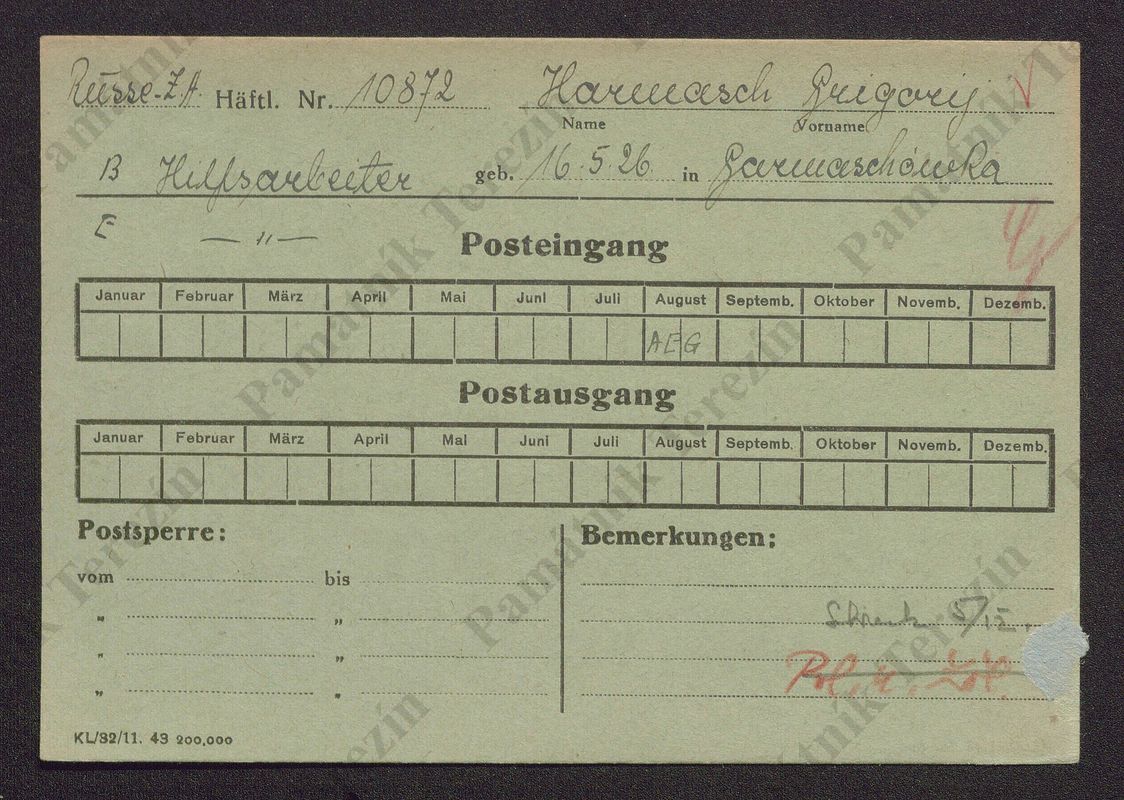 Russe-ZA. Häftl. Nr. 10872 Harmasch Grigorij
Name Vorname
B Hilfsarbeiter geb. 16.5.26 in Garmaschówka
E — " —
Posteingang
Januar Februar März April Mai Juni Juli August Septemb. Oktober Novemb. Dezemb.
AEG
Postausgang
Januar Februar März April Mai Juni Juli August Septemb. Oktober Novemb. Dezemb.
Postsperre: Bemerkungen:
vom bis
" "
" "
" "
Pol.
KL/82/11. 43 200,000
Památník Terezín